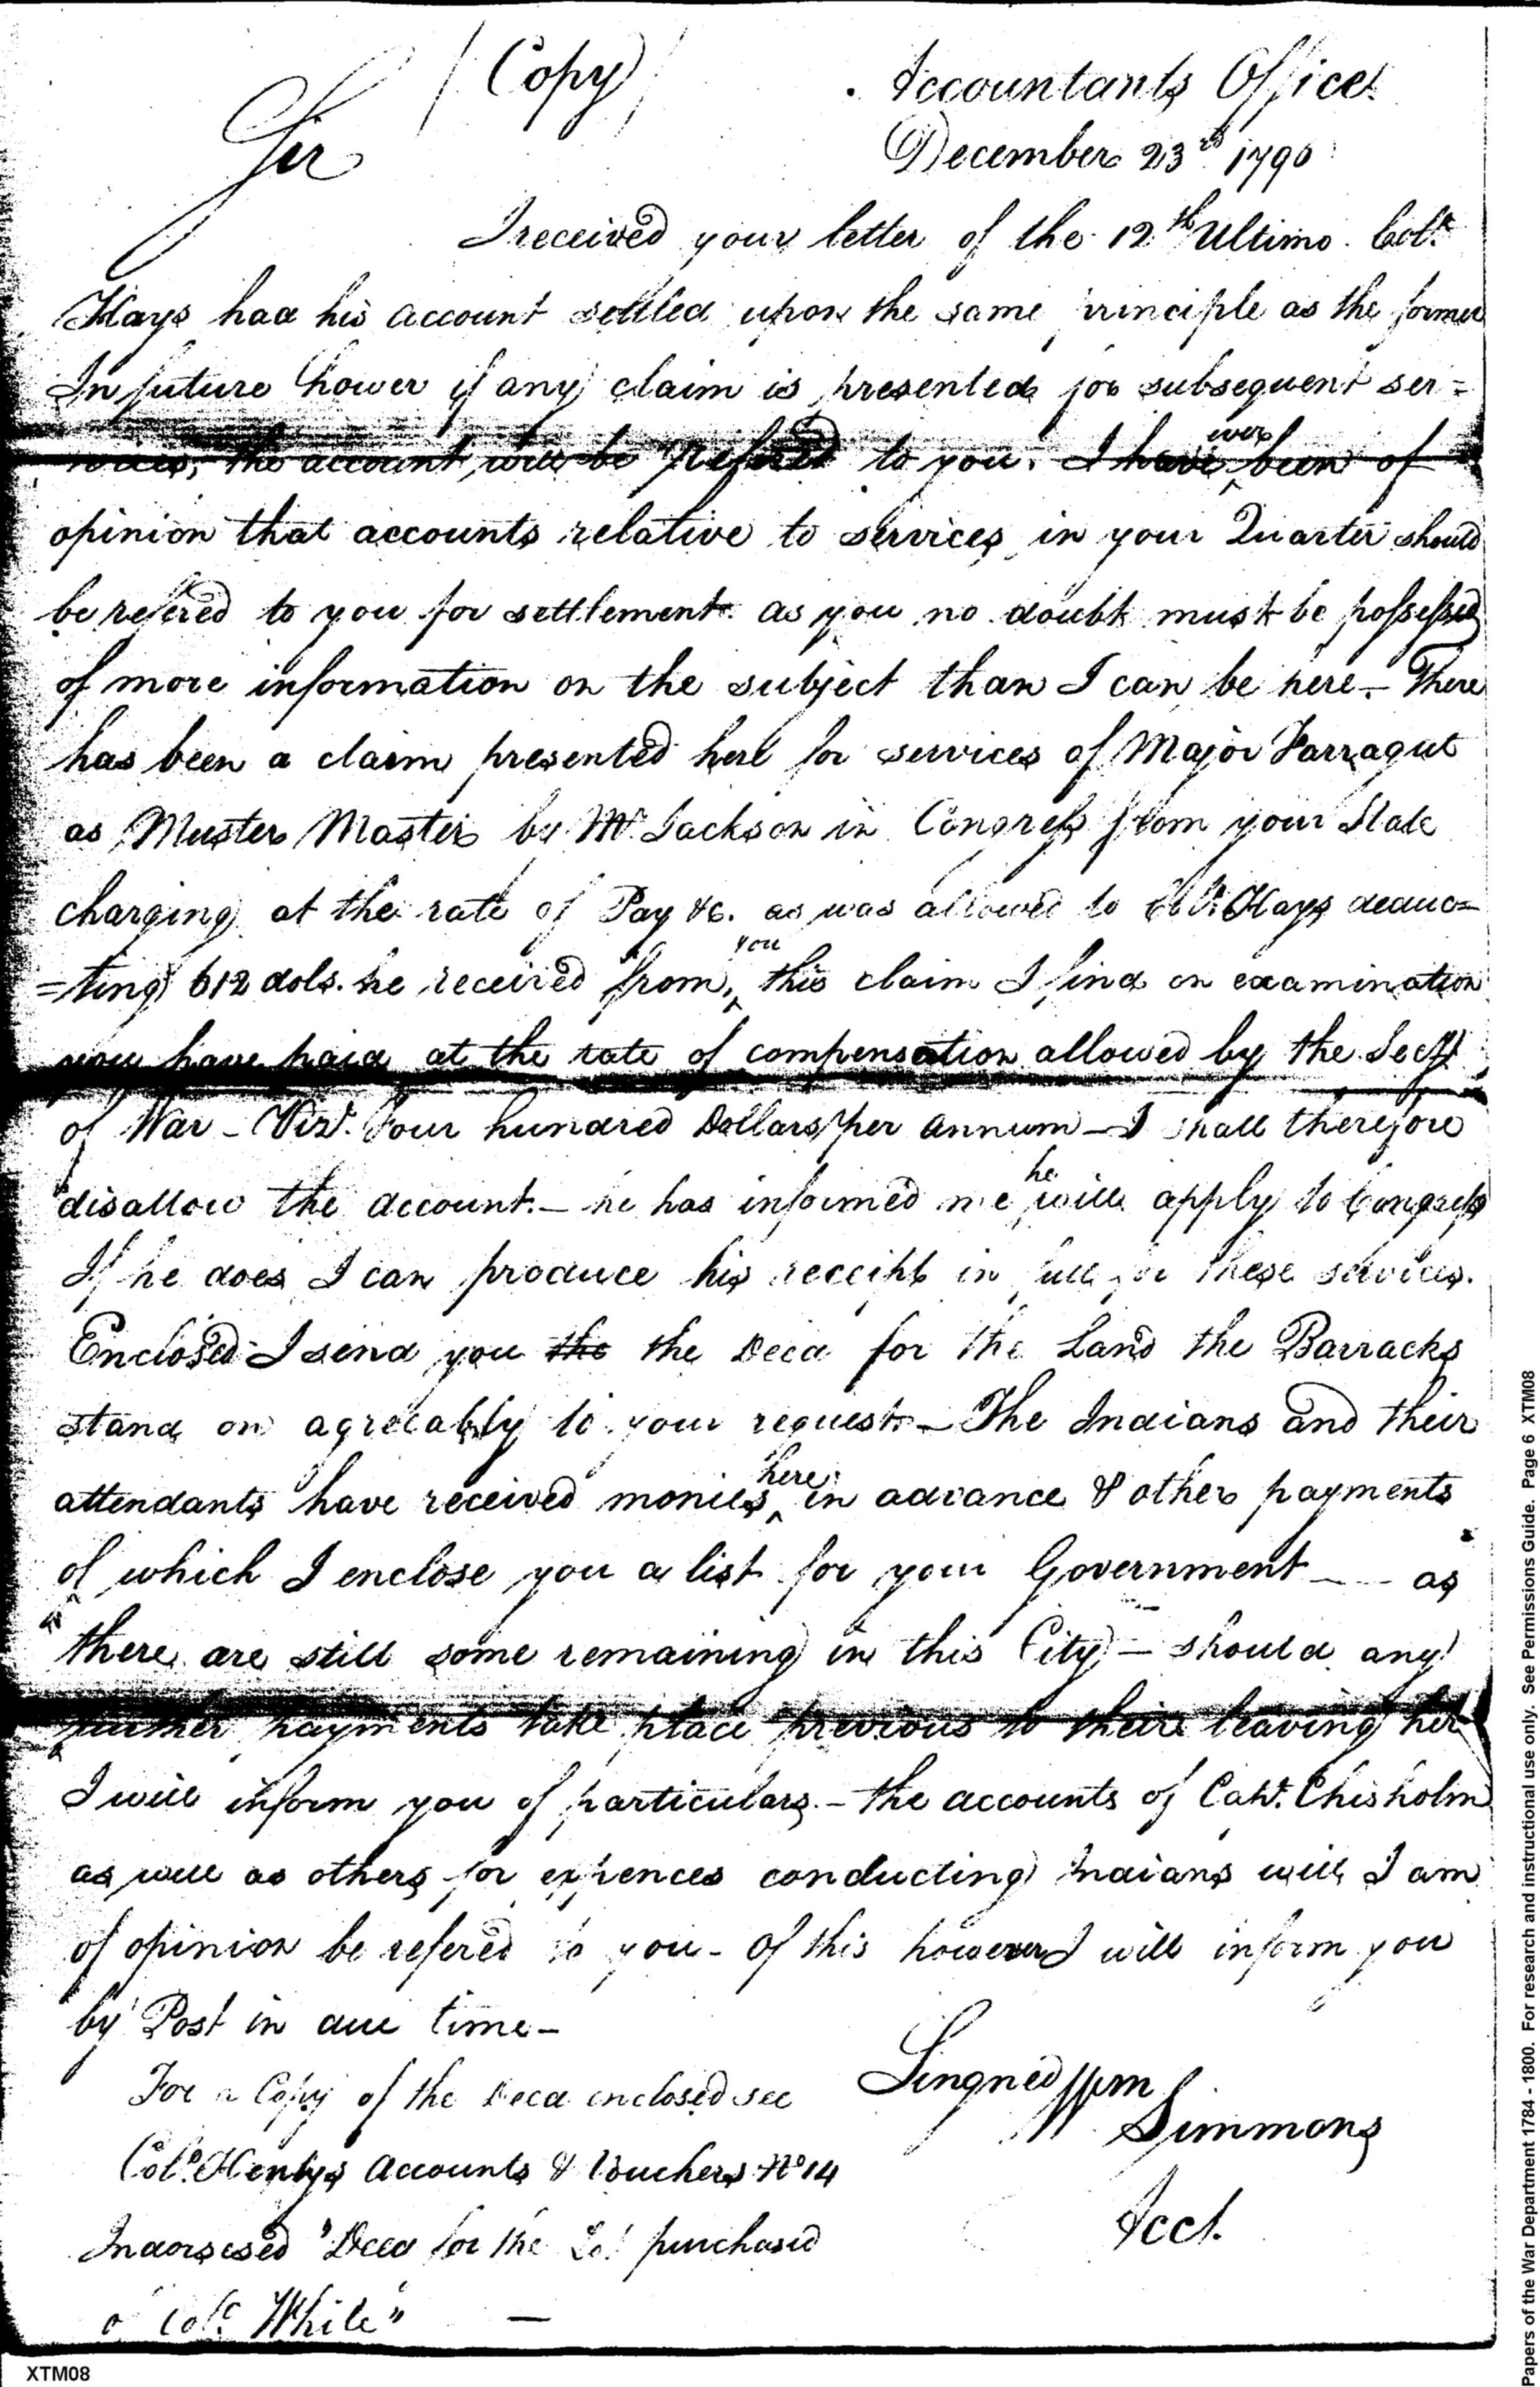 (Copy)
Accountants Office
December 23d 1796
Sir
I received your letter of the 12th Ultimo. Colo.
Hays had his account settled upon the same principle as the former
In future hower if any claim is presented for subsequent ser=
vices, the account will be refered to you. I have ever been of
opinion that accounts relative to services in your Quarter should
be refered to you for settlement as you no doubt must be possessed
of more information on the subject than I can be here – There
has been a claim presented here for services of Major Farragut
as Muster Master by Mr. Jackson in Congress from your State
charging at the rate of Pay &c. as was allowed to Colo. Hays deduc=
=ting 612 dols. he received from you this claim I find on examination
you have paid at the rate of compensation allowed by the Secy
of War – Vizt. Four hundred Dollars per annum – I shall therefore
disallow the account. – he has informed me he will apply to Congress
If he does I can produce his receipt in full for these services.
Enclosed I send you the the Deed for the Land the Barracks
stand on agreeably to your request – The Indians and their
attendants have received monies here in advance & other payments
of which I enclose you a list for your Government — as
there are still some remaining in this City – should any
further payments take place previous to their leaving her
I will inform you of particulars. – the accounts of Capt. Chisholm
as well as others for expences conducting Indians will I am
of opinion be refered to you – of this however I will inform you
by Post in due time –
Singned Wm
Simmons
Acct.
For a Copy of the Deed enclosed see
Colo. Henlys Accounts & Vouchers No 14
Indorsesed "Deed for the Lot purchased
o Colo. White" —
XTM08
Papers of the War Department 1784 - 1800. For research and instructional use only. See Permissions Guide. Page 6 XTM08